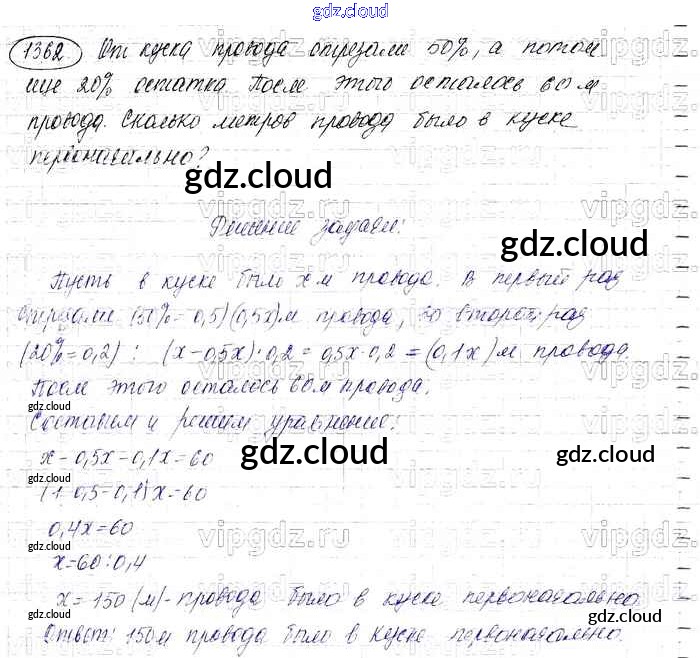 gdz.cloud
1362 От куска провода отрезали 50%, а потом
еще 20% остатка. После этого осталось 60 м
провода. Сколько метров провода было в куске
первоначально?
gdz.cloud
Решение задачи:
gdz.cloud
Пусть в куске было x м провода. В первый раз
отрезали (50%=0,5) (0,5x) м провода, во второй раз
(20%=0,2) : (x-0,5x)·0,2=0,5x·0,2=(0,1x) м провода.
После этого осталось 60 м провода.
gdz.cloud
Составим и решим уравнение:
x-0,5x-0,1x=60
gdz.cloud gdz.cloud gdz.cloud
(1-0,5-0,1)x=60
0,4x=60
gdz.cloud
x=60:0,4
x=150 (м)-провода было в куске первоначально.
gdz.cloud gdz.cloud gdz.cloud
Ответ: 150 м провода было в куске первоначально.